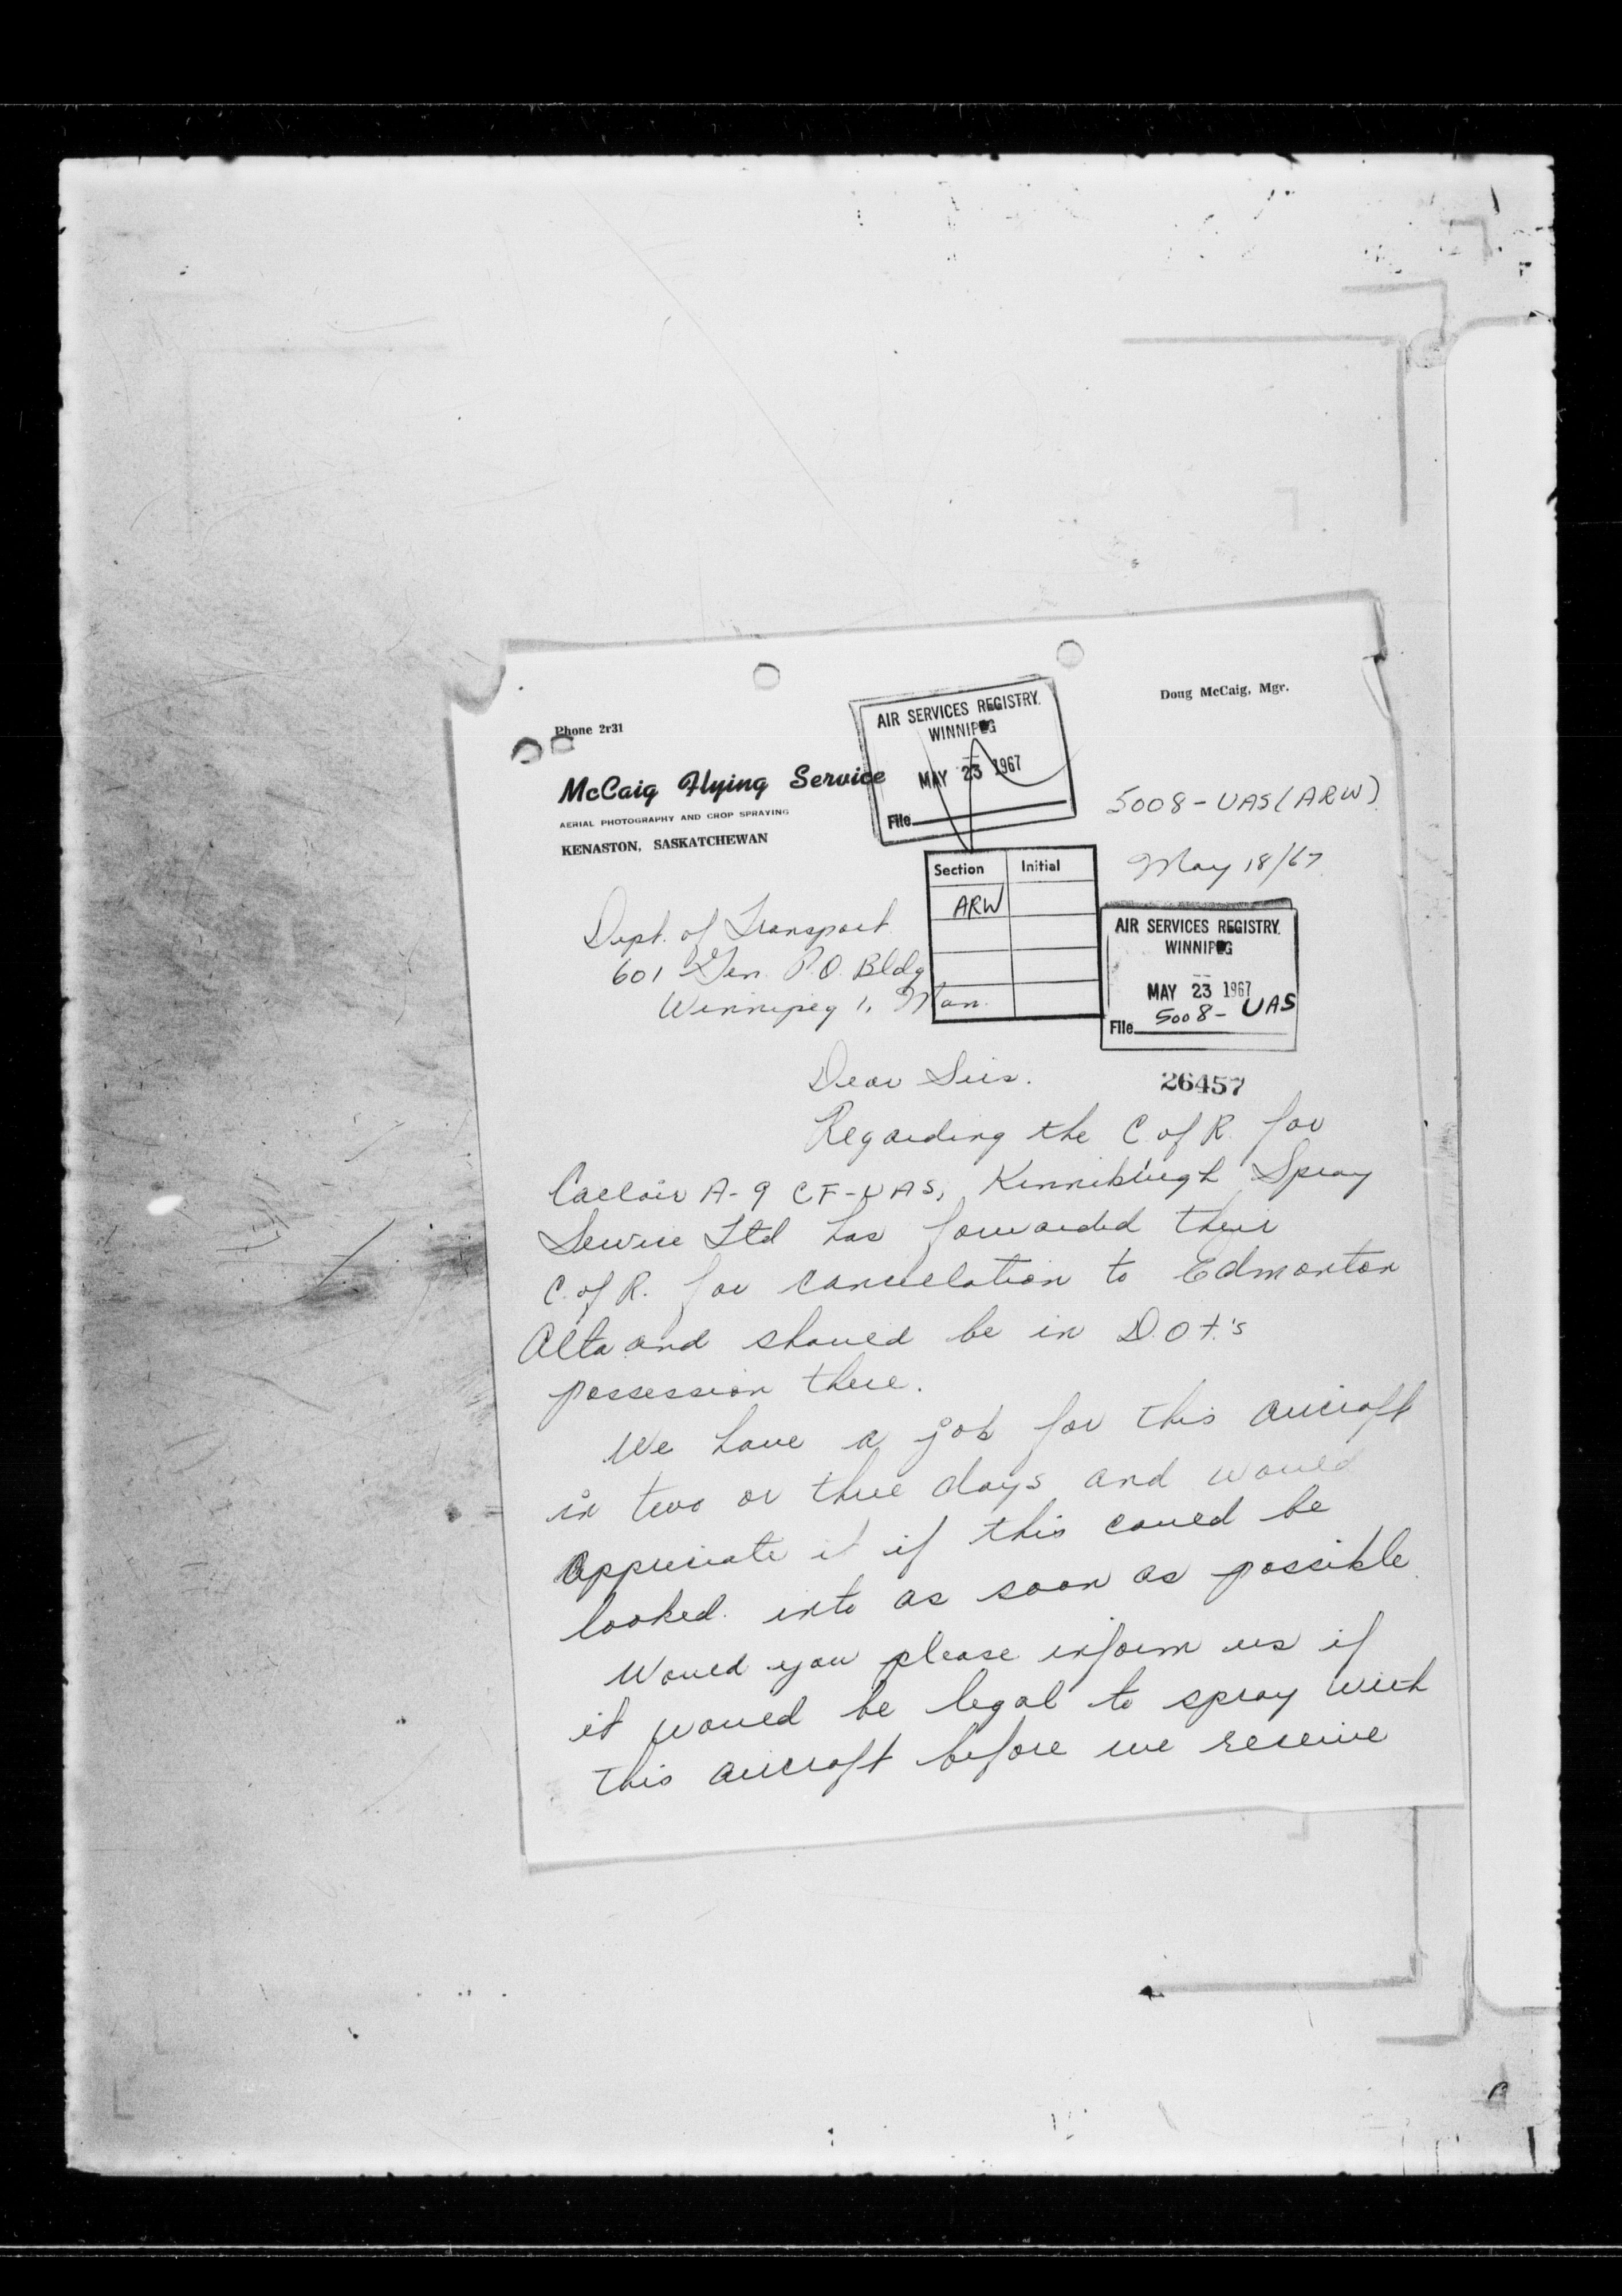 Phone 2r31
Doug McCaig, Mgr.
McCaig Flying Service
AERIAL PHOTOGRAPHY AND CROP SPRAYING
KENASTON, SASKATCHEWAN
AIR SERVICES REGISTRY.
WINNIPEG
MAY 23 1967
File
5008-UAS(ARW)
May 18/67
Section Initial
ARW
AIR SERVICES REGISTRY.
WINNIPEG
MAY 23 1967
File 5008-UAS
26457
Dept. of Transport
601 Gen. P.O. Bldg
Winnipeg 1, Man.
Dear Sirs.
Regarding the C. of R. for
Callair A-9 CF-UAS, Kinniburgh Spray
Service Ltd has forwarded their
C. of R. for cancelation to Edmonton
Alta and should be in D.O.T.'s
possession there.
We have a job for this aircraft
in two or three days and would
appreciate it if this could be
looked into as soon as possible.
Would you please inform us if
it would be legal to spray with
this aircraft before we receive